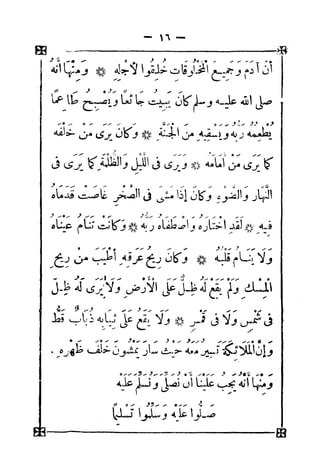 — ١٦ —
أَنَّ آدَمَ وَجَمِيعَ الْمَخْلُوقَاتِ خُلِقُوا لِأَجْلِهِ * وَمِنْهَا أَنَّهُ
صلى الله عليه وسلم كَانَ يَبِيتُ جَائِعًا وَيُصْبِحُ طَاعِمًا
يُطْعِمُهُ رَبُّهُ وَيَسْقِيهِ مِنَ الْجَنَّةِ * وَكَانَ يَرَى مَنْ خَلْفَهُ
كَمَا يَرَى مَنْ أَمَامَهُ * وَيَرَى فِي اللَّيْلِ وَالظُّلْمَةِ كَمَا يَرَى فِي
النَّهَارِ وَالضَّوْءِ وَكَانَ إِذَا مَشَى فِي الصَّخْرِ غَاصَتْ قَدَمَاهُ
فِيهِ * لَقَدِ اخْتَارَهُ وَاصْطَفَاهُ رَبُّهُ * وَكَانَتْ تَنَامُ عَيْنَاهُ
وَلَا يَنَامُ قَلْبُهُ * وَكَانَ رِيحُ عَرَقِهِ أَطْيَبَ مِنْ رِيحِ
الْمِسْكِ وَلَمْ يَقَعْ لَهُ ظِلٌّ عَلَى الْأَرْضِ وَلَا يُرَى لَهُ ظِلٌّ
فِي شَمْسٍ وَلَا فِي قَمَرٍ * وَلَا يَقَعُ عَلَى ثِيَابِهِ ذُبَابٌ قَطُّ
وَإِنَّ الْمَلَائِكَةَ تَسِيرُ مَعَهُ حَيْثُ سَارَ يَمْشُونَ خَلْفَ ظَهْرِهِ .
وَمِنْهَا أَنَّهُ يَجِبُ عَلَيْنَا أَنْ نُصَلِّيَ وَنُسَلِّمَ عَلَيْهِ
صَلُّوا عَلَيْهِ وَسَلِّمُوا تَسْلِيمًا